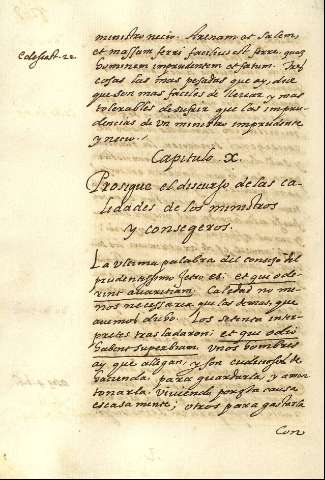 ministro necio. Arenam et salem,
Eclesiast. 22. et massam ferri facilius est ferre, quam
hominem imprudentem et fatuum. Tres
cosas las mas pesadas que ay, dice
que son mas faciles de llevar, y mas
tolerables de sufrir que las impru-
dencias de un ministro imprudente
y necio.
Capitulo X.
Prosigue el discurso de las ca-
lidades de los ministros
y consegeros.
La ultima palabra del consejo del
prudentissimo Jetro es: et qui ode-
rint avaritiam. Calidad no me-
nos necessaria que las demas, que
avemos dicho. Los setenta inter-
pretes trasladaron: et qui odio
habent superbiam. Unos hombres
ay que allegan, y son cudiciosos de
hacienda, para guardarla, y amon-
tonarla viviendo por esta causa
escasamente; otros para gastarla
Con